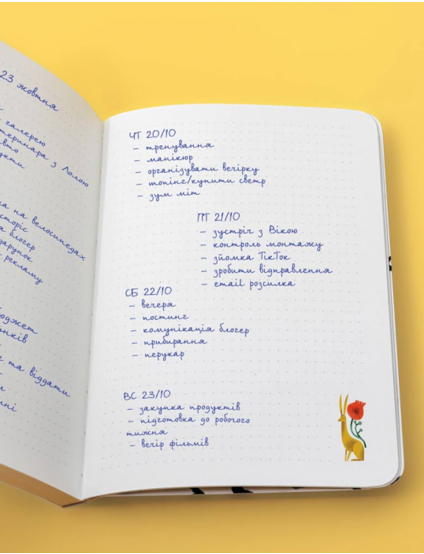 23 жовтня
галерею
теринара з Лолою
авто
дукти
на велосипедах
сторіс
блогер
дарунок
рекламу
юджет
нків
та віддати
ЧТ 20/10
– тренування
– манікюр
– організувати вечірку
– шопінг/купити светр
– зум міт
ПТ 21/10
– зустріч з Вікою
– контроль монтажу
– зйомка ТікТок
– зробити відправлення
– email розсилка
СБ 22/10
– вечеря
– постинг
– комунікація блогер
– прибирання
– перукар
ВС 23/10
– закупка продуктів
– підготовка до робочого
тижня
– вечір фільмів